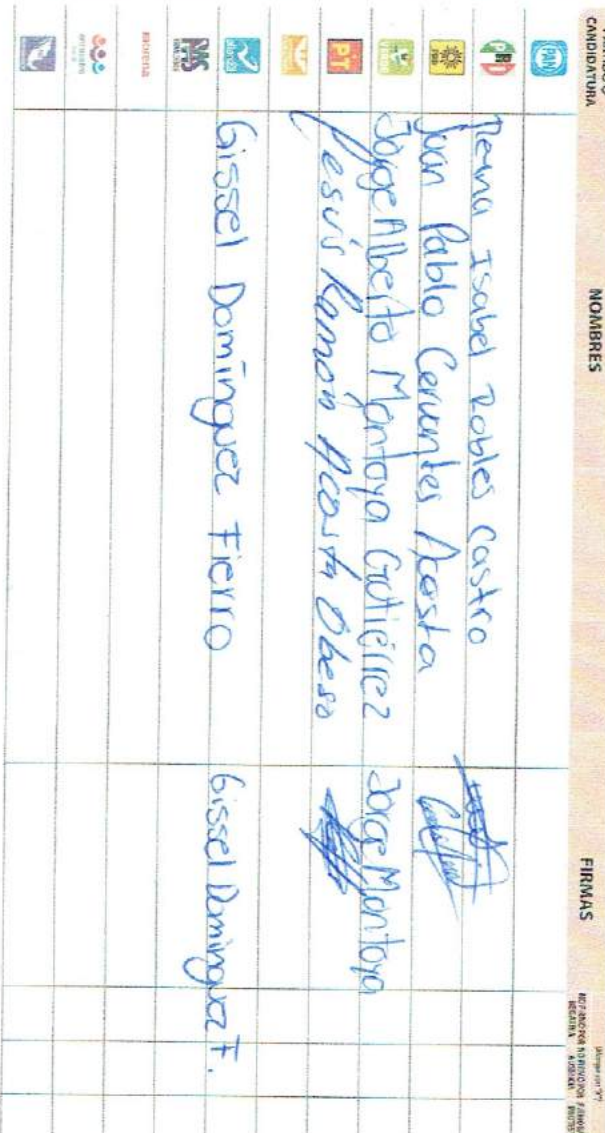 CANDIDATURA NOMBRES FIRMAS
PAN
PRI Reyna Isabel Robles Castro
PRD Juan Pablo Cervantes Acosta
VERDE Jorge Alberto Montoya Gutiérrez Jorge Montoya
PT Jesús Ramón Acosta Obeso
PAS Gissel Domínguez Fierro Gissel Domínguez F.
morena